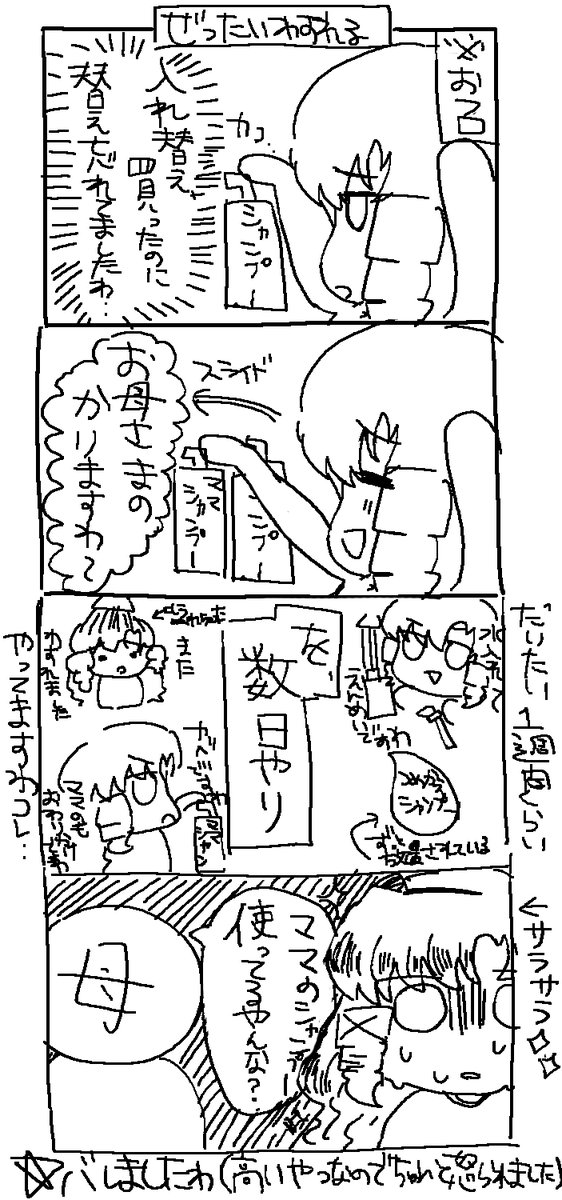 ぜったいわすれる
※お風呂
カコ…
シャンプー
入れ替え
買ったのに
替え忘れてましたわ…
スライド
シャンプー
ママ
シャンプー
お母さまの
かりますわ〜
だいたい1週間くらい
水入れて
を、
数日やり
また
わすれました
つめかえ
シャンプー
ずっと
放置されている
ママのも
やってますわコレ…
←サラサラ
ママのシャンプー
使ってるやんな?
母
バレましたわ(高いやつなのでちゃんと怒られました)